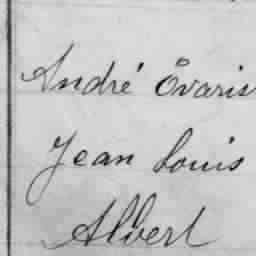 André Évaris
Jean Louis
Albert